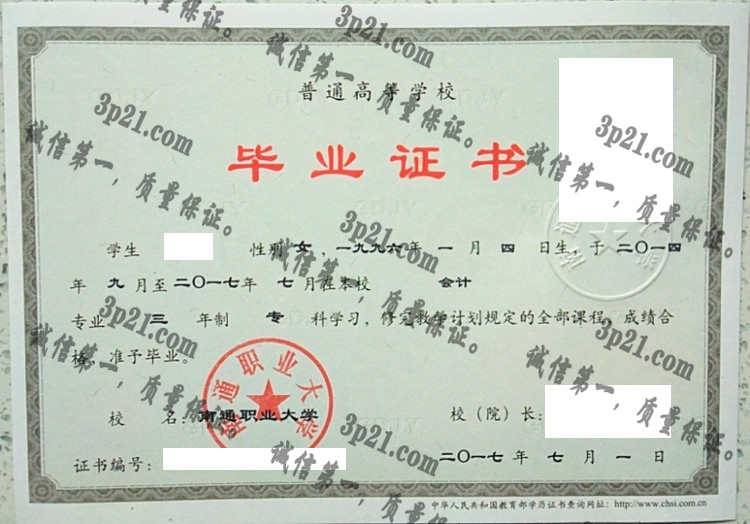 普通高等学校
毕业证书
学生 性别 女，一九九六年 一 月 四 日生，于 二〇一四
年 九 月至 二〇一七年 七 月在本校 会计
专业 三 年制 专 科学习，修完教学计划规定的全部课程，成绩合
格，准予毕业。
校 名：南通职业大学
校（院）长：
证书编号：
二〇一七 年 七 月 一 日
中华人民共和国教育部学历证书查询网址：http://www.chsi.com.cn
南通职业大学
3p21.com
诚信第一，质量保证。
3p21.com
诚信第一，质量保证。
3p21.com
诚信第一，质量保证。
3p21.com
诚信第一，质量保证。
3p21.com
诚信第一，质量保证。
3p21.com
诚信第一，质量保证。
3p21.com
诚信第一，质量保证。